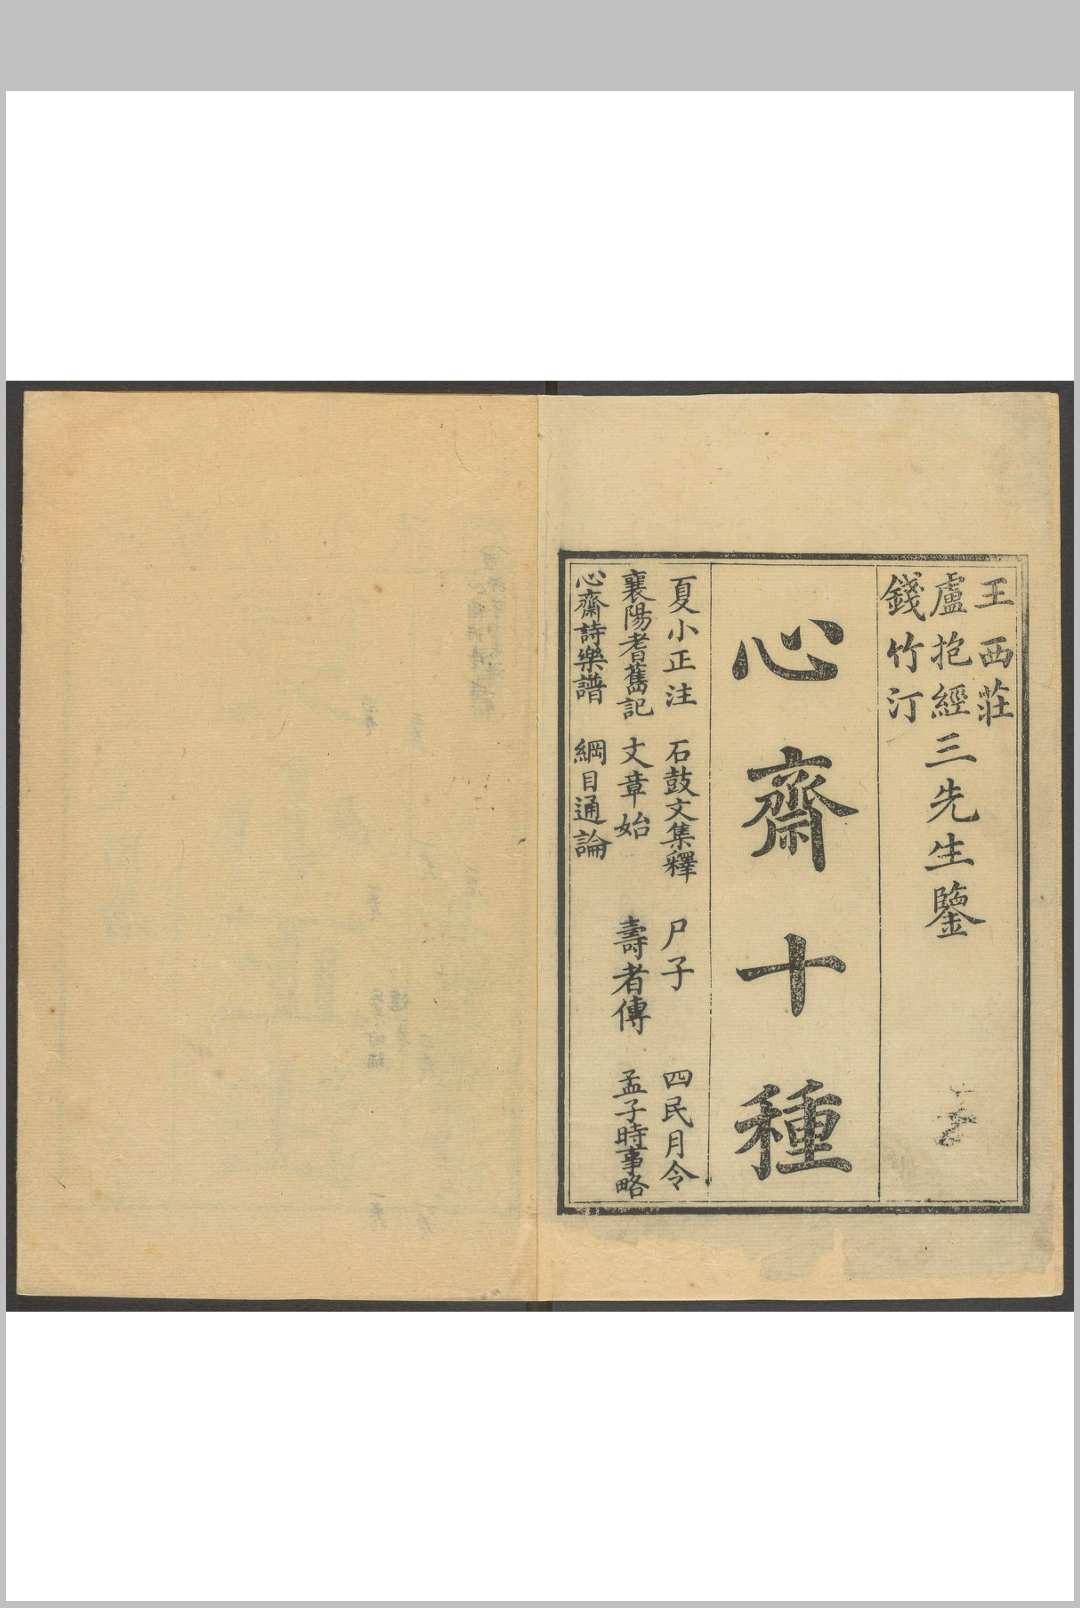 王西莊
盧抱經三先生鑒
錢竹汀
心齋十種
夏小正注 石鼓文集釋 尸子 四民月令
襄陽耆舊記 文章始 壽者傳 孟子時事略
心齋詩樂譜 綱目通論